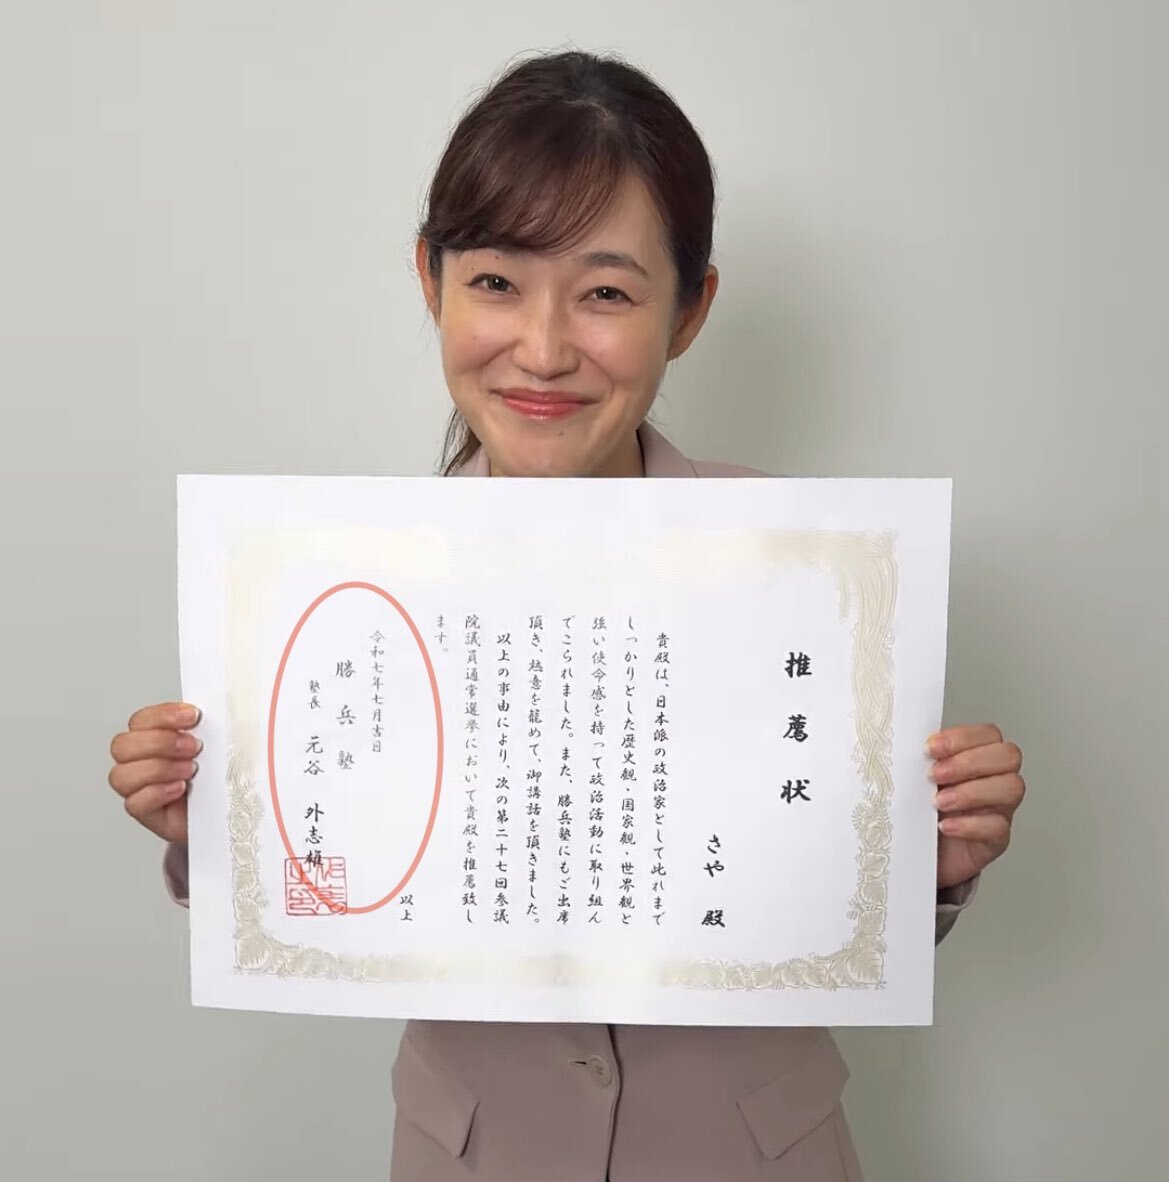 推薦状
さや 殿
貴殿は、日本派の政治家として此れまで
しっかりとした歴史観・国家観・世界観と
強い使命感を持って政治活動に取り組ん
でこられました。また、勝兵塾にもご出席
頂き、熱意を籠めて、御講話を頂きました。
以上の事由により、次の第二十七回参議
院議員通常選挙において貴殿を推薦致し
ます。
以上
令和七年七月吉日
勝兵塾
塾長 元谷 外志雄